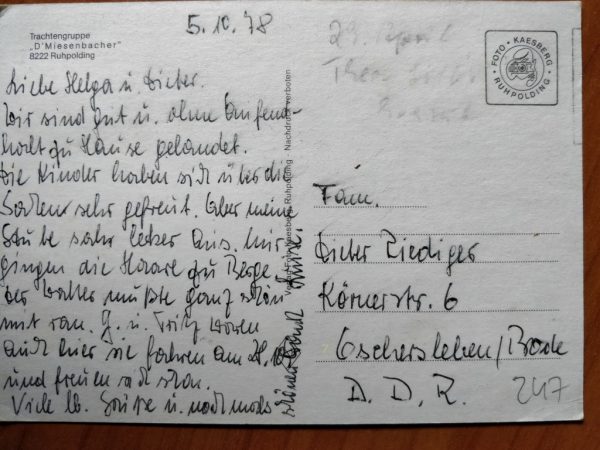 Trachtengruppe
„D'Miesenbacher"
8222 Ruhpolding
5.10.78
Liebe Helga u. Dieter.
Wir sind gut u. ohne Aufent-
halt zu Hause gelandet.
Die Kinder haben sich über die
Sachen sehr gefreut. Aber meine
Stube sah lecker aus. Mir
gingen die Haare zu Berge.
Der Walter mußte ganz schön
mit ran. G. u. Fritz waren
auch hier sie fahren am
und freuen sich schon.
Viele lb. Grüße u. nochmals
schönen Dank
Verlag Foto Kaesberg, Ruhpolding · Nachdruck verboten
29. April
FOTO · KAESBERG · RUHPOLDING
Fam.
Dieter Riediger
Körnerstr. 6
Oschersleben/Bode
D. D. R.
247